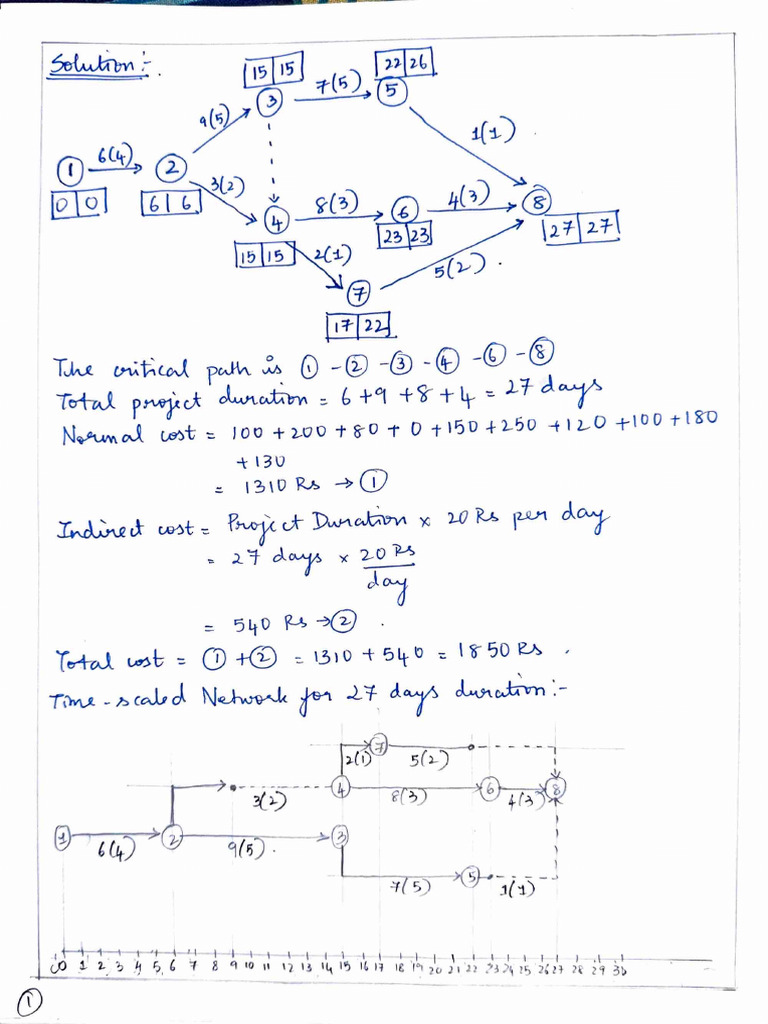 Solution:-
15 15
22 26
9(5)
3
7(5)
5
1(1)
1
6(4)
2
3(2)
0 0
6 6
4
8(3)
6
4(3)
8
15 15
2(1)
23 23
27 27
7
5(2)
17 22
The critical path is 1 - 2 - 3 - 4 - 6 - 8
Total project duration = 6+9+8+4 = 27 days
Normal cost = 100 + 200 + 80 + 0 + 150 + 250 + 120 + 100 + 180
+ 130
= 1310 Rs → 1
Indirect cost = Project Duration × 20 Rs per day
= 27 days × 20 Rs
day
= 540 Rs → 2 .
Total cost = 1 + 2 = 1310 + 540 = 1850 Rs .
Time-scaled Network for 27 days duration:-
7
2(1)
5(2)
4
3(2)
8(3)
6
4(3)
8
1
6(4)
2
9(5).
3
7(5)
5
1(1)
0 1 2 3 4 5 6 7 8 9 10 11 12 13 14 15 16 17 18 19 20 21 22 23 24 25 26 27 28 29 30
1